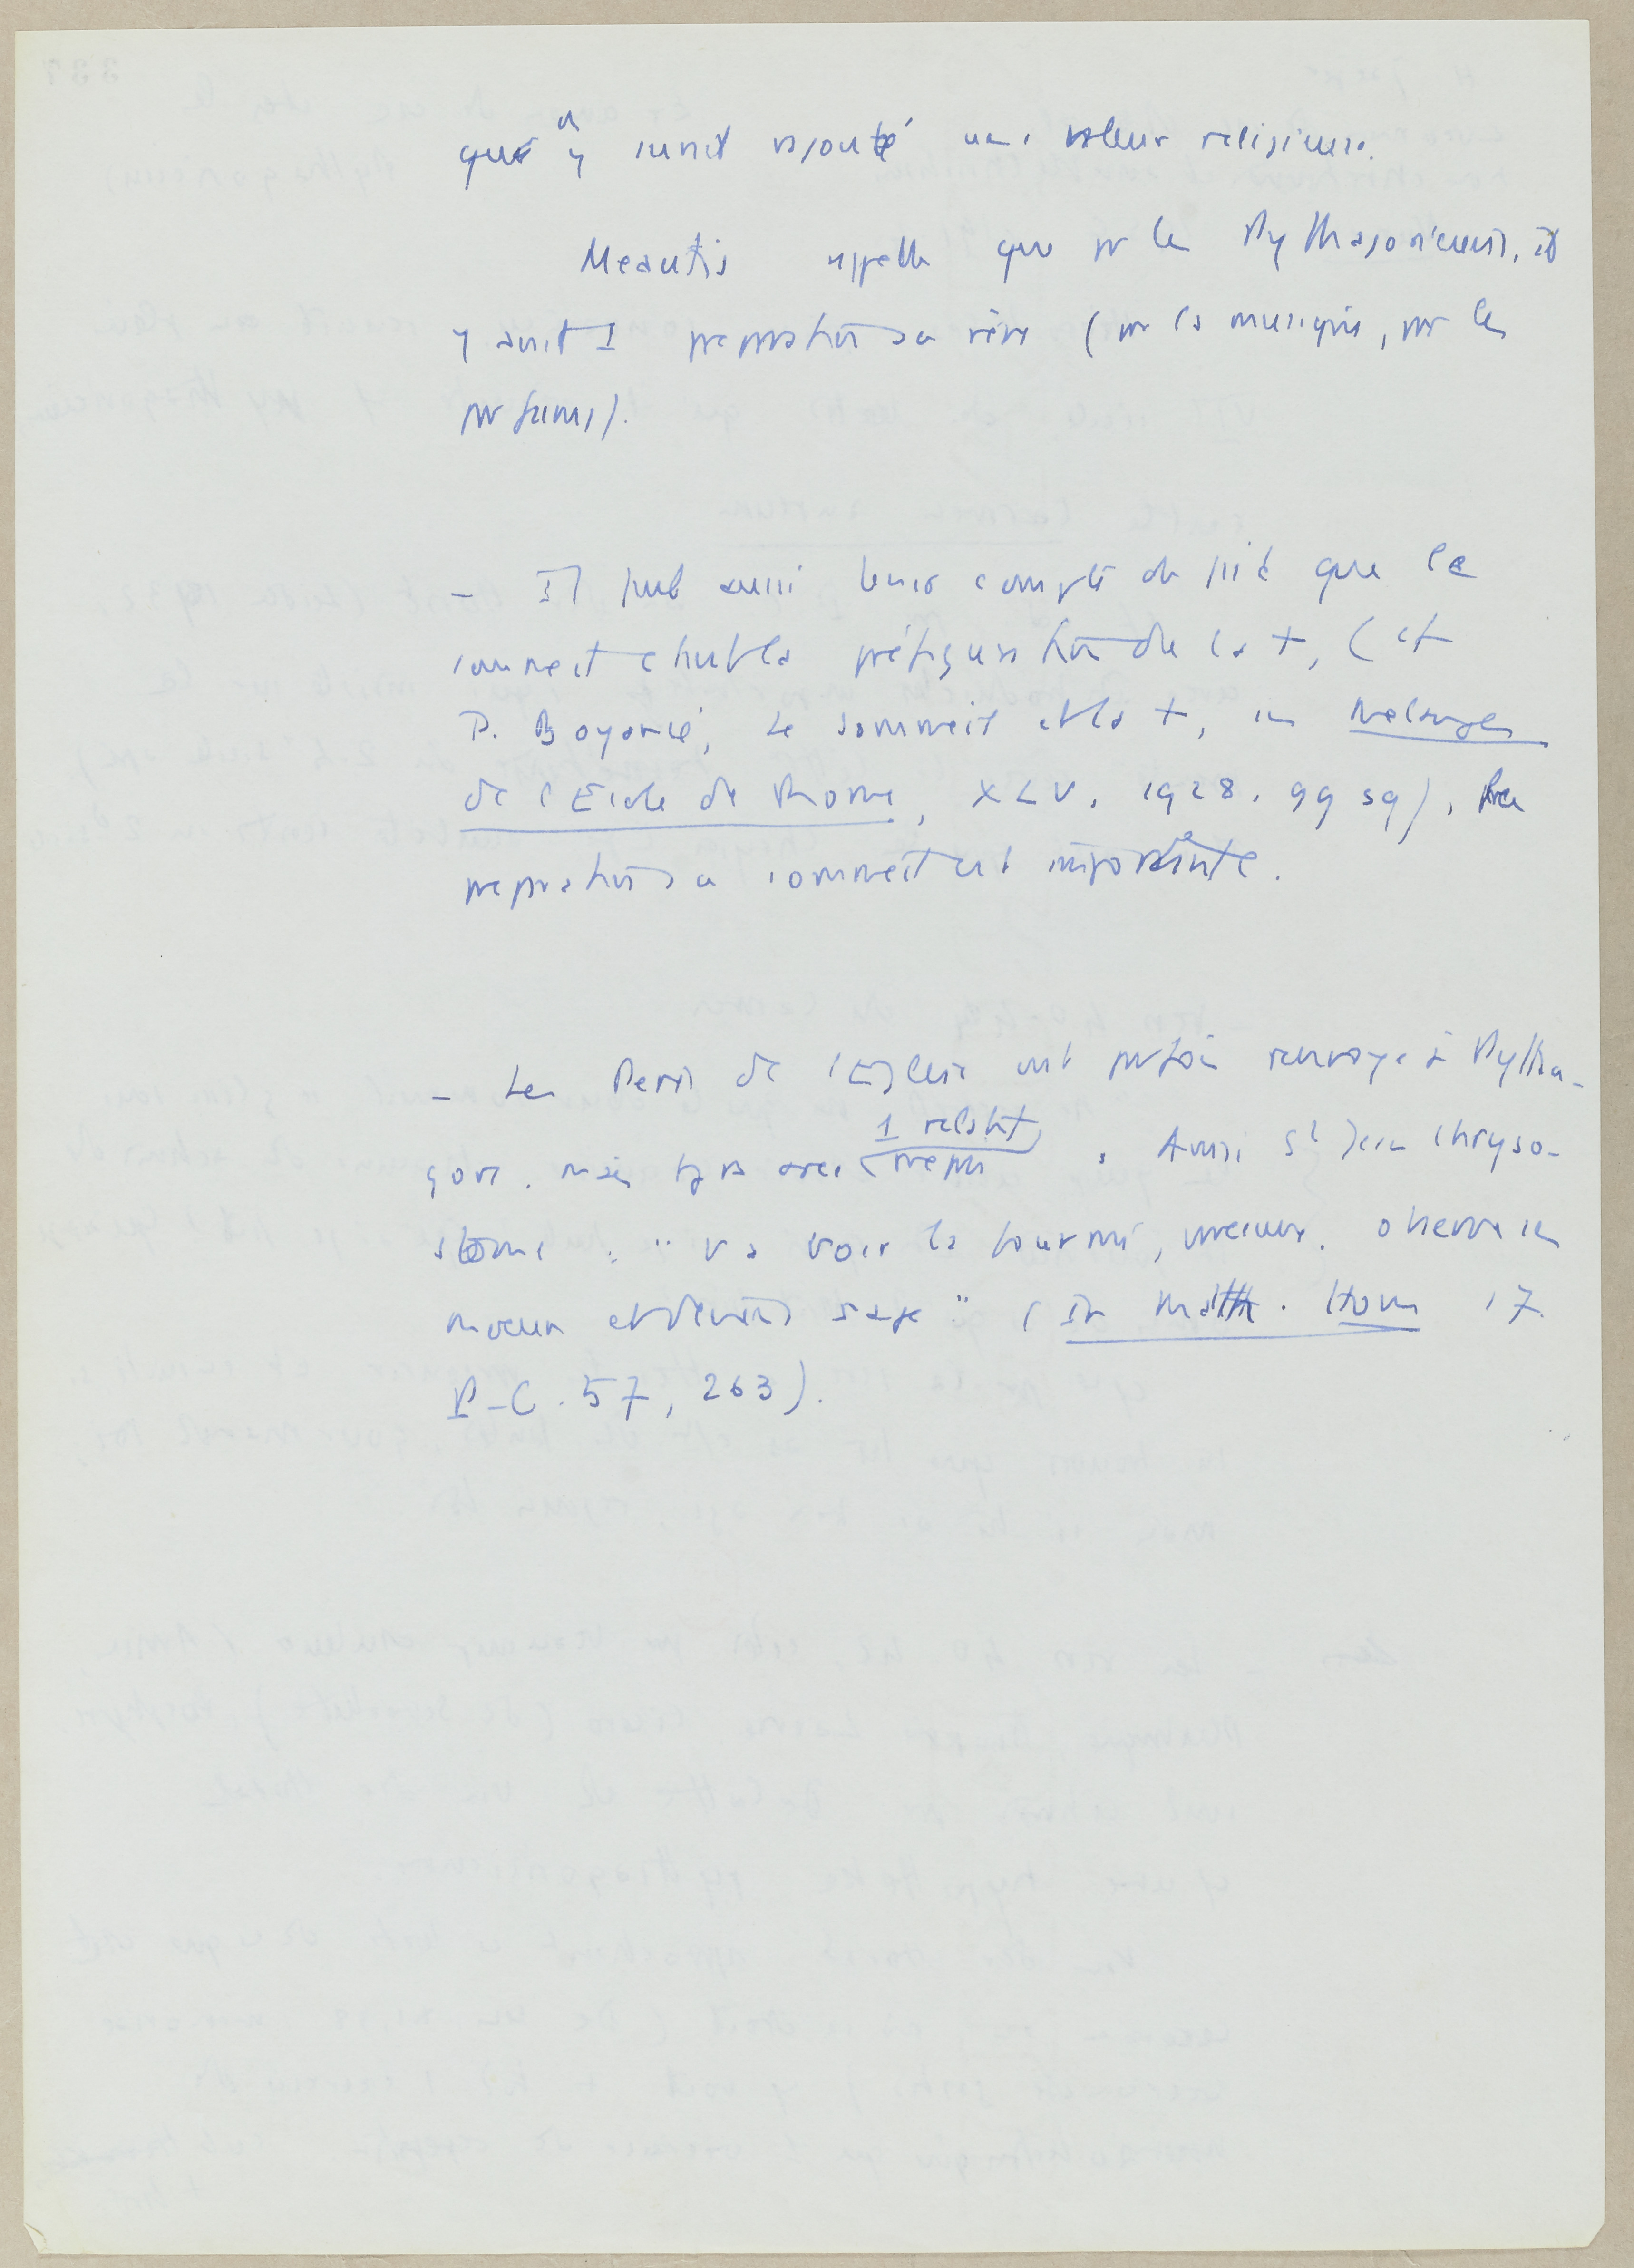 que on y aurait ajouté une valeur religieuse.
Meautis rappelle que pr les Pythagoriciens, il
y avait 1 préparation au rêve (par la musique, par les
parfums).
– Il faut aussi tenir compte du fait que le
sommeil étant la préfiguration de la +, (cf
P. Boyancé, Le sommeil et la +, in Mélanges
de l'Ecole de Rome, XLV. 1928. 99 sq), la
préparation au sommeil est importante.
– Les Pères de l'Eglise ont parfois renvoyé à Pytha-
gore. mais tjrs avec 1 relatif
mépris. Ainsi St Jean Chryso-
stome : "va voir la fourmi, paresseux. observe ses
moeurs et deviens sage" (In Matth. Hom 17.
P-G. 57, 263).